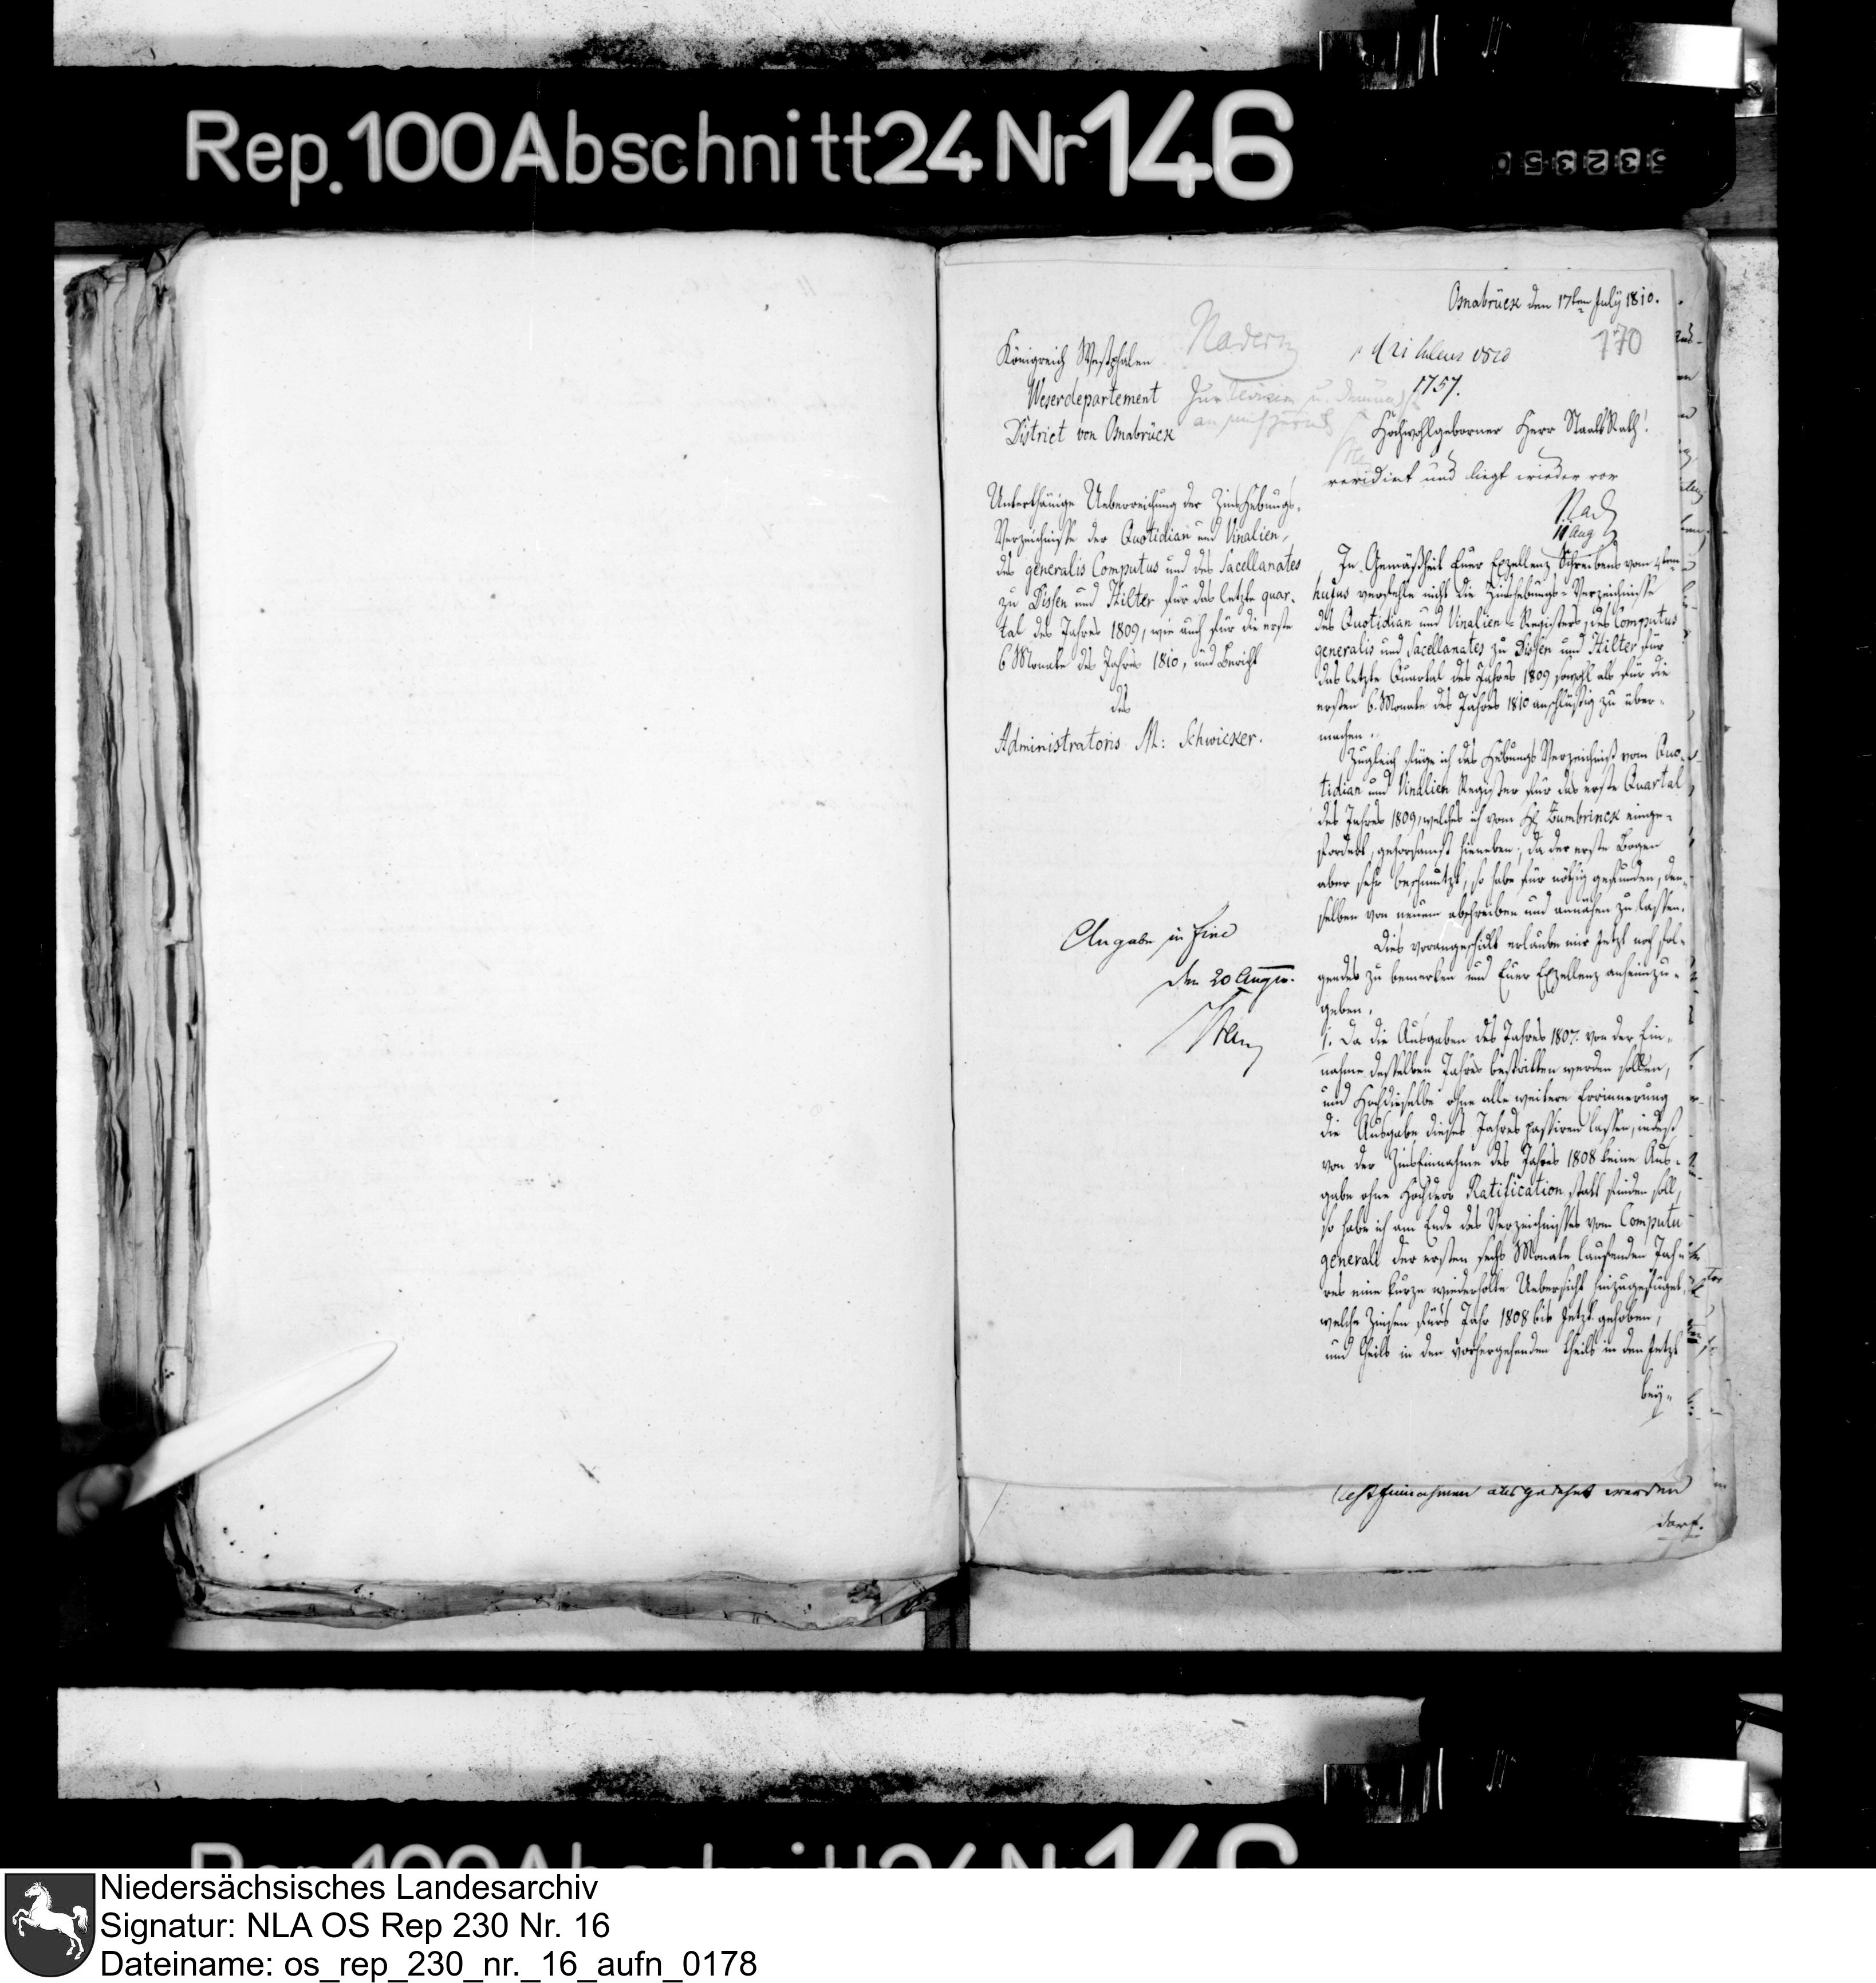 Rep. 100 Abschnitt 24 Nr 146
053235
Osnabrück den 17ten July 1810.
170
Königreich Westphalen
Weserdepartement
District von Osnabrück
1757.
Hochwohlgeborner Herr StaatsRath!
revidirt und liegt wieder vor
11 Aug
Unterthänige Ueberreichung der Zins Hebungs-
Verzeichnisse der Quotidian und Vinalien,
des generalis Computus und des Sacellanates
zu Dissen und Hilter für das letzte quar-
tal des Jahres 1809, wie auch für die erste
6 Monate des Jahres 1810, und Bericht
des
Administratoris M: Schwicker.
Angabe in fine
den 20 Aug
In Gemäßheit Euer Exzellenz Schreibens vom 4ten
hujus verfehle nicht die Zinshebungs-Verzeichnisse
des Quotidian und Vinalien-Registers, des Computus
generalis und Sacellanates zu Dissen und Hilter für
das letzte Quartal des Jahres 1809 sowohl als für die
ersten 6. Monate des Jahres 1810 anschlüßig zu über-
machen.
Zugleich füge ich das Hebungs Verzeichniß vom Quo-
tidian und Vinalien Register für das erste Quartal
des Jahres 1809, welches ich vom H Zumbrinck einge-
fordert, gehorsamst hieneben; da der erste Bogen
aber sehr beschmutzt, so habe für nöthig gefunden, den-
selben von neuem abschreiben und annähen zu lassen.
Dies vorangeschickt erlaube mir jetzt noch fol-
gendes zu bemerken und Euer Exzellenz anheimzu-
geben.
1. Da die Ausgaben des Jahres 1807. von der Ein-
nahme desselben Jahres bestritten werden sollen,
und Hochdieselbe ohne alle weitere Erinnerung
die Ausgabe dieses Jahres passiren lassen, indeß
von der Zinseinnahme des Jahres 1808 keine Aus-
gabe ohne Hochdero Ratification statt finden soll,
so habe ich am Ende des Verzeichnisses vom Computu
generali der ersten sechs Monate laufenden Jah-
res eine kurze wiederholte Uebersicht hinzugefüget,
welche Zinsen fürs Jahr 1808 bis jetzt gehoben,
und theils in den vorhergehenden theils in den jetzt
bey-
ausgedehnt werden
darf.
Niedersächsisches Landesarchiv
Signatur: NLA OS Rep 230 Nr. 16
Dateiname: os_rep_230_nr._16_aufn_0178